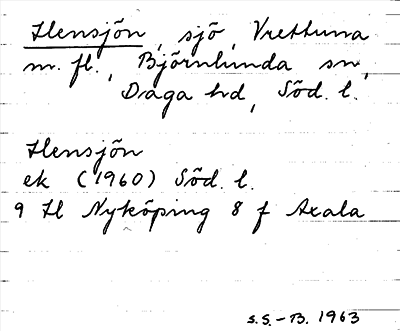 Hensjön, sjö, Vrettuna
m. fl., Björnlunda sn,
Daga hd, Söd. l.
Hensjön
ek (1960) Söd. l.
9 H Nyköping 8 f Axala
S.S.-B. 1963